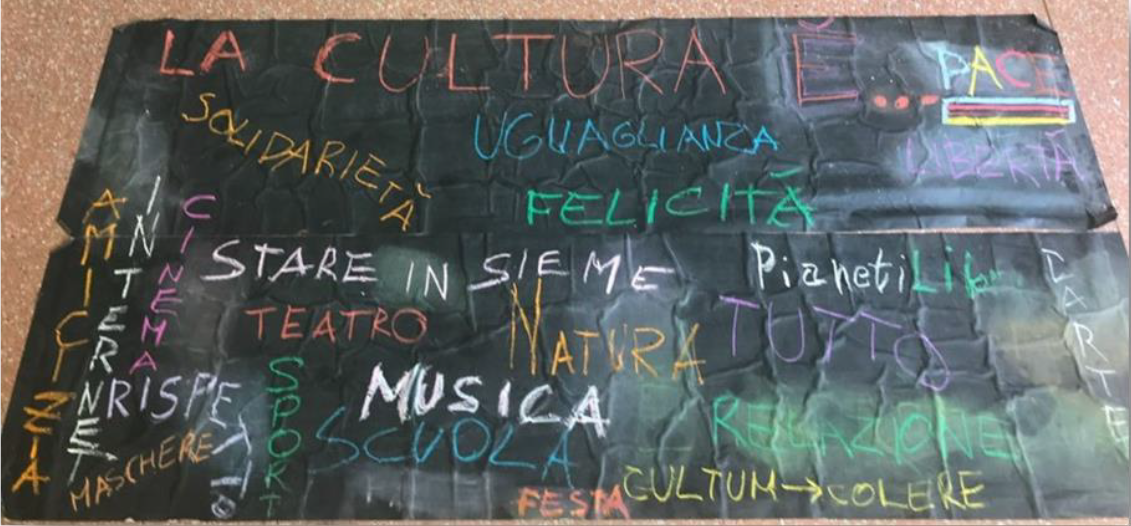 LA CULTURA È...
PACE
SOLIDARIETÀ
UGUAGLIANZA
LIBERTÀ
FELICITÀ
AMICIZIA
INTERNET
CINEMA
STARE INSIEME
Pianeti Lib
L'ARTE
TEATRO
NATURA
TUTTO
RISPETTO
SPORT
MUSICA
SCUOLA
RELAZIONE
MASCHERE
FESTA
CULTUM→COLERE